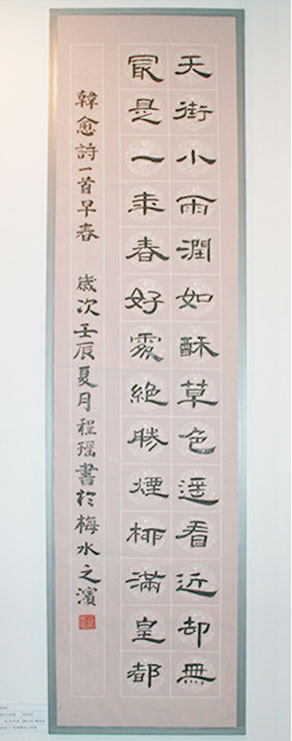 天街小雨潤如酥草色遥看近却無
最是一年春好處絕勝煙柳滿皇都
韓愈詩一首早春 歲次壬辰夏月程瑶書於梅水之濱